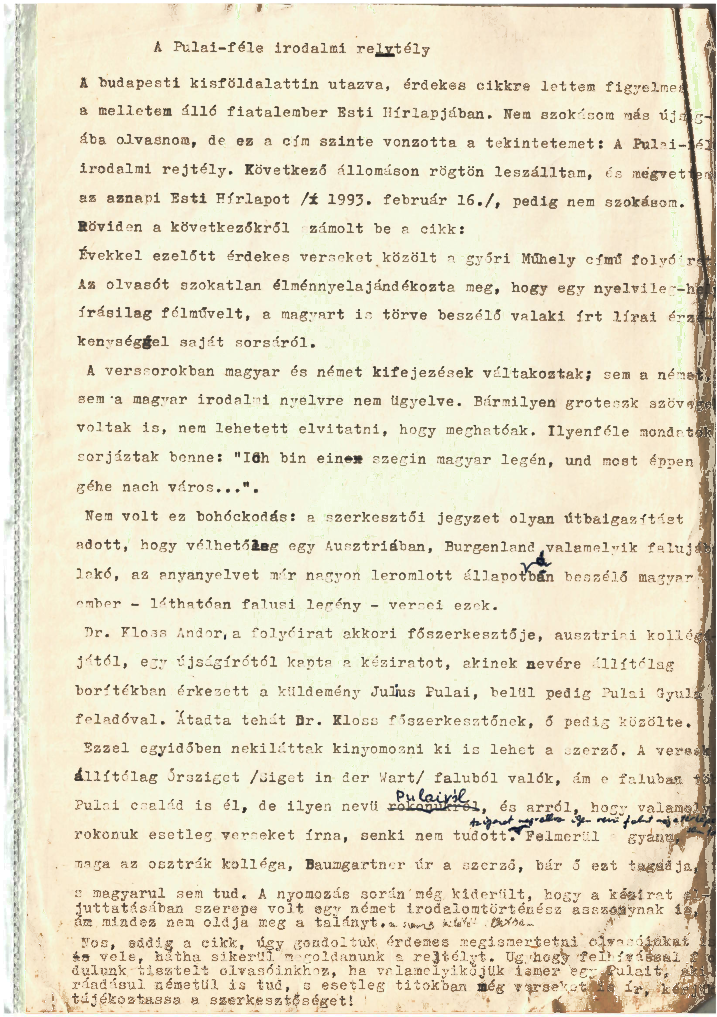 A Pulai-féle irodalmi relytély
A budapesti kisföldalattin utazva, érdekes cikkre lettem figyelmes
a melletem álló fiatalember Esti Hírlapjában. Nem szokásom más újság-
ába olvasnom, de ez a cím szinte vonzotta a tekintetemet: A Pulai-fél
irodalmi rejtély. Következő állomáson rögtön leszálltam, és megvettem
az aznapi Esti Hírlapot /i 1993. február 16./, pedig nem szokásom.
Röviden a következőkről számolt be a cikk:
Évekkel ezelőtt érdekes verseket közölt a győri Műhely című folyóirat
Az olvasót szokatlan élménnyelajándékozta meg, hogy egy nyelvileg-hel
írásilag félművelt, a magyart is törve beszélő valaki írt lírai érzé-
kenységgel saját sorsáról.
A verssorokban magyar és német kifejezések váltakoztak; sem a német
sem a magyar irodalmi nyelvre nem ügyelve. Bármilyen groteszk szövege
voltak is, nem lehetett elvitatni, hogy meghatóak. Ilyenféle mondatok
sorjáztak benne: "Ich bin einem szegin magyar legén, und most éppen
géhe nach város...".
Nem volt ez bohóckodás: a szerkesztői jegyzet olyan útbaigazítást
adott, hogy vélhetőleg egy Ausztriában, Burgenland valamelyik falujáb
lakó, az anyanyelvet már nagyon leromlott állapotban beszélő magyar
ember - láthatóan falusi legény - versei ezek.
Dr. Kloss Andor, a folyóirat akkori főszerkesztője, ausztriai kollégá
jától, egy újságírótól kapta a kéziratot, akinek nevére állítólag
borítékban érkezett a küldemény Julius Pulai, belül pedig Pulai Gyula
feladóval. Átadta tehát Dr. Kloss főszerkesztőnek, ő pedig közölte.
Ezzel egyidőben nekiláttak kinyomozni ki is lehet a szerző. A versek
állítólag Őrsziget /Siget in der Wart/ faluból valók, ám e faluban
Pulairól
Pulai család is él, de ilyen nevü rokonukról, és arról, hogy valamely
rokonuk esetleg verseket írna, senki nem tudott. Felmerül gyanu
maga az osztrák kolléga, Baumgartner úr a szerző, bár ő ezt tagadja,
s magyarul sem tud. A nyomozás során még kiderült, hogy a kézirat
juttatásában szerepe volt egy német irodalomtörténész asszonynak is,
ám mindez nem oldja meg a talányt.
Nos, eddig a cikk, úgy gondoltuk érdemes megismertetni olvasóinkat
és vele, hátha sikerül megoldanunk a rejtélyt. Ugyhogy felhívással
dulunk tisztelt olvasóinkhoz, ha valamelyikőjük ismer egy Pulait, aki
ráadásul németül is tud, s esetleg titokban még verseket is ír,
tújékoztassa a szerkesztőséget!